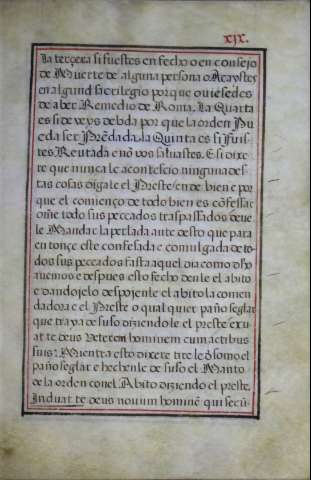 xix.
la terçera si fuestes en fecho o en consejo
de Muerte de alguna persona o Caystes
en algund sacrilegio porque ouiesedes
de aber Remedio de Roma. La Quarta
es si deveys debda por que la orden Pu
eda ser Prẽdada. la Quinta es si fuis
tes Reutada e nõ vos saluastes. E si dixe
re que nunca le acontescio ninguna des
tas cosas digale el Preste/ en de bien e por
que el comienço de todo bien es cõfessar
ome todo sus peccados traspassados deue
le Mandar la perlada ante desto que para
en tonçe este confesada e comulgada de to-
dos sus peccados fasta aquel dia como
auemos e despues esto fecho denle el abito
e dandojelo despojenle el abito la comen
dadora e el Preste o qual quier paño seglar
que traya de suso diziendole el preste exu
at te deus Veterem hominem cum actibus
suis: Mientra esto dixere tire le de somo el
paño seglar e hechenle de suso el Manto
de la orden con el Abito diziendo el preste.
Induat te deus nouum hominẽ qui secũ-